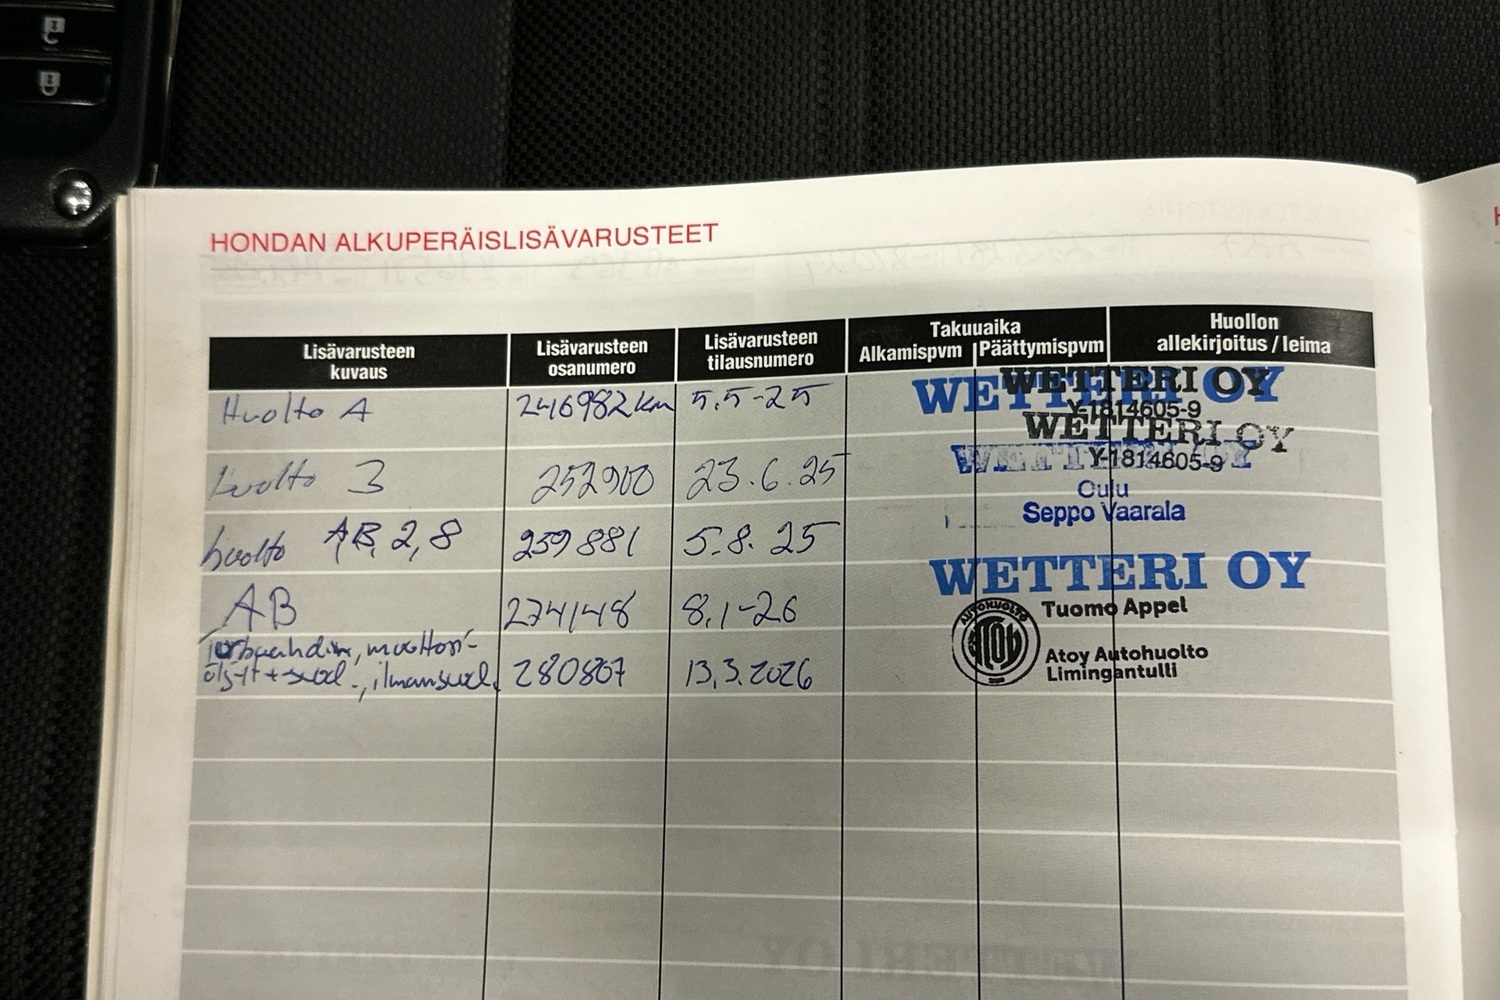 HONDAN ALKUPERÄISLISÄVARUSTEET
Lisävarusteen kuvaus
Lisävarusteen osanumero
Lisävarusteen tilausnumero
Takuuaika
Alkamispvm Päättymispvm
Huollon allekirjoitus / leima
Huolto A 246982 km 5.5-25
WETTERI OY
WETTERI OY
Y-1814605-9
WETTERI OY
Y-1814605-9
huolto 3 252900 23.6.25
WETTERI OY
Oulu
Seppo Vaarala
huolto AB, 2, 8 259881 5.8.25
WETTERI OY
AB 274148 8.1-26
Tuomo Appel
AUTOHUOLTO
Atoy Autohuolto
Limingantulli
moottori-
öljyt + suod., ilmansuod. 280807 13.3.2026